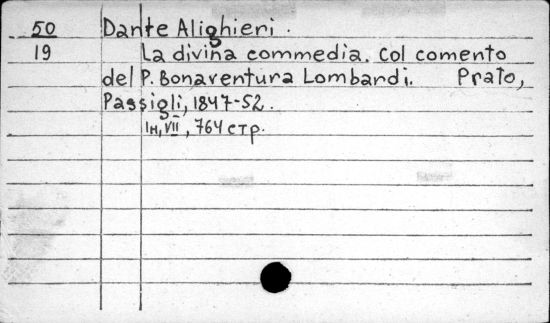 50 Dante Alighieri.
19 La divina commedia. Col comento
del P. Bonaventura Lombardi. Prato,
Passigli, 1847-52.
1н, VII, 764 стр.